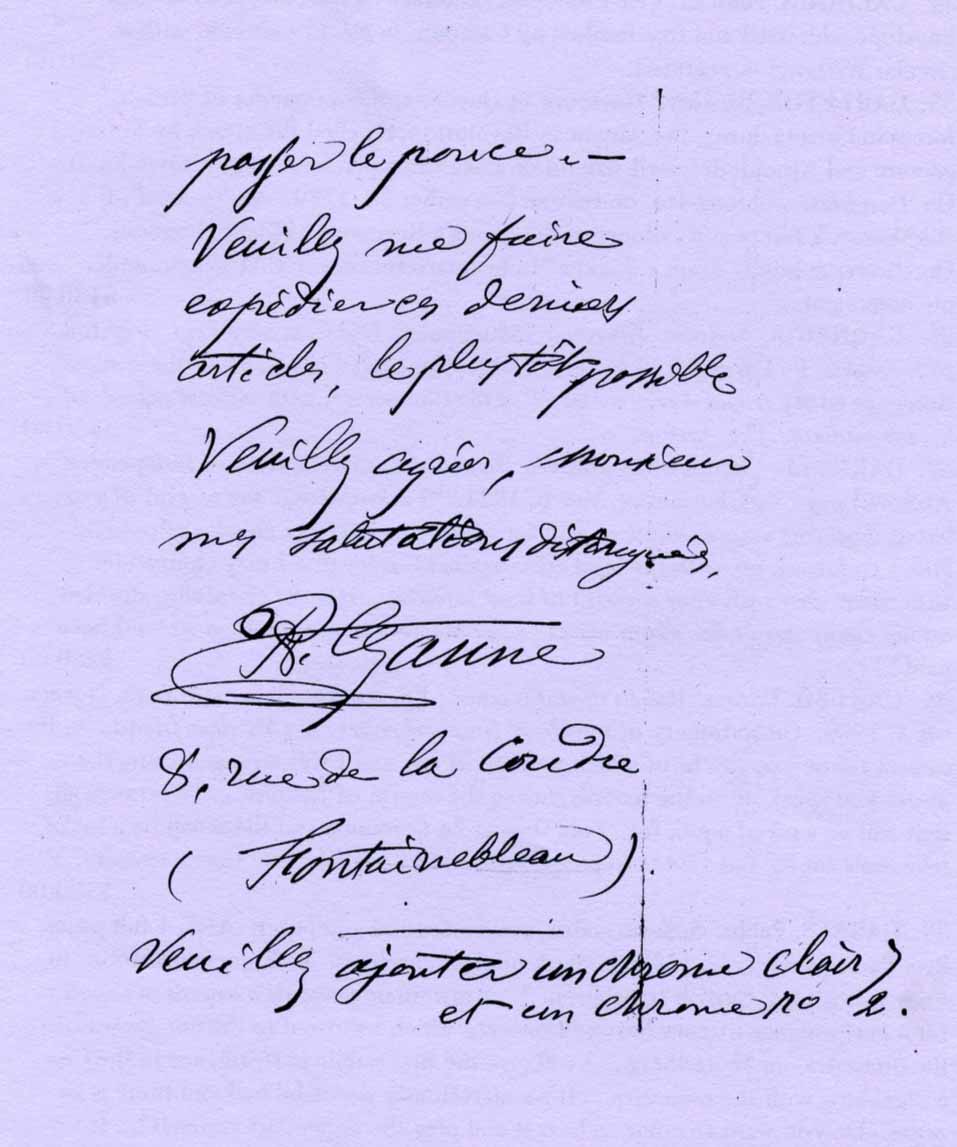 passer le pouce. —
Veuillez me faire
expédier ces derniers
articles, le plus tôt possible
Veuillez agréer, monsieur
mes salutations distinguées,
P. Cézanne
8, rue de la Coudre
(Fontainebleau).
Veuillez ajouter un chrome clair
et un chrome no 2.